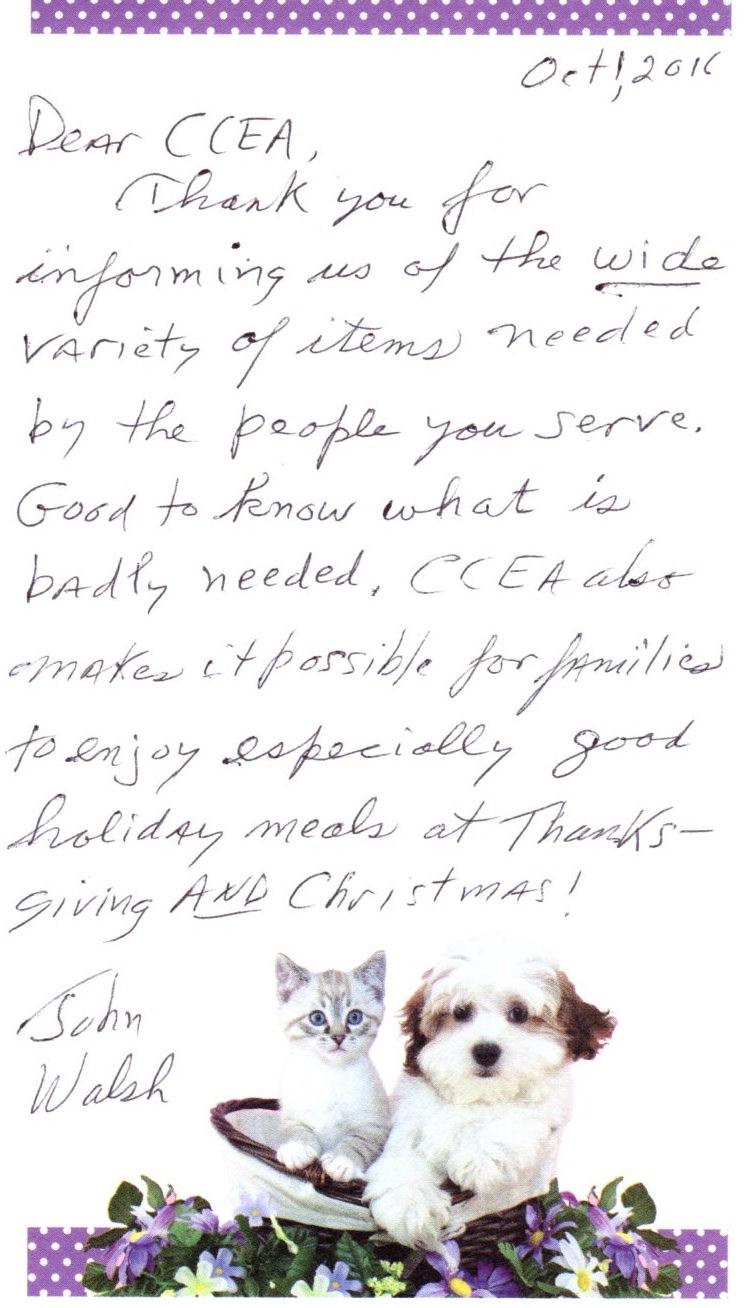 Oct 1, 2016
Dear CCEA,
Thank you for
informing us of the wide
variety of items needed
by the people you serve.
Good to know what is
badly needed. CCEA also
makes it possible for families
to enjoy especially good
holiday meals at Thanks-
giving AND Christmas!
John
Walsh